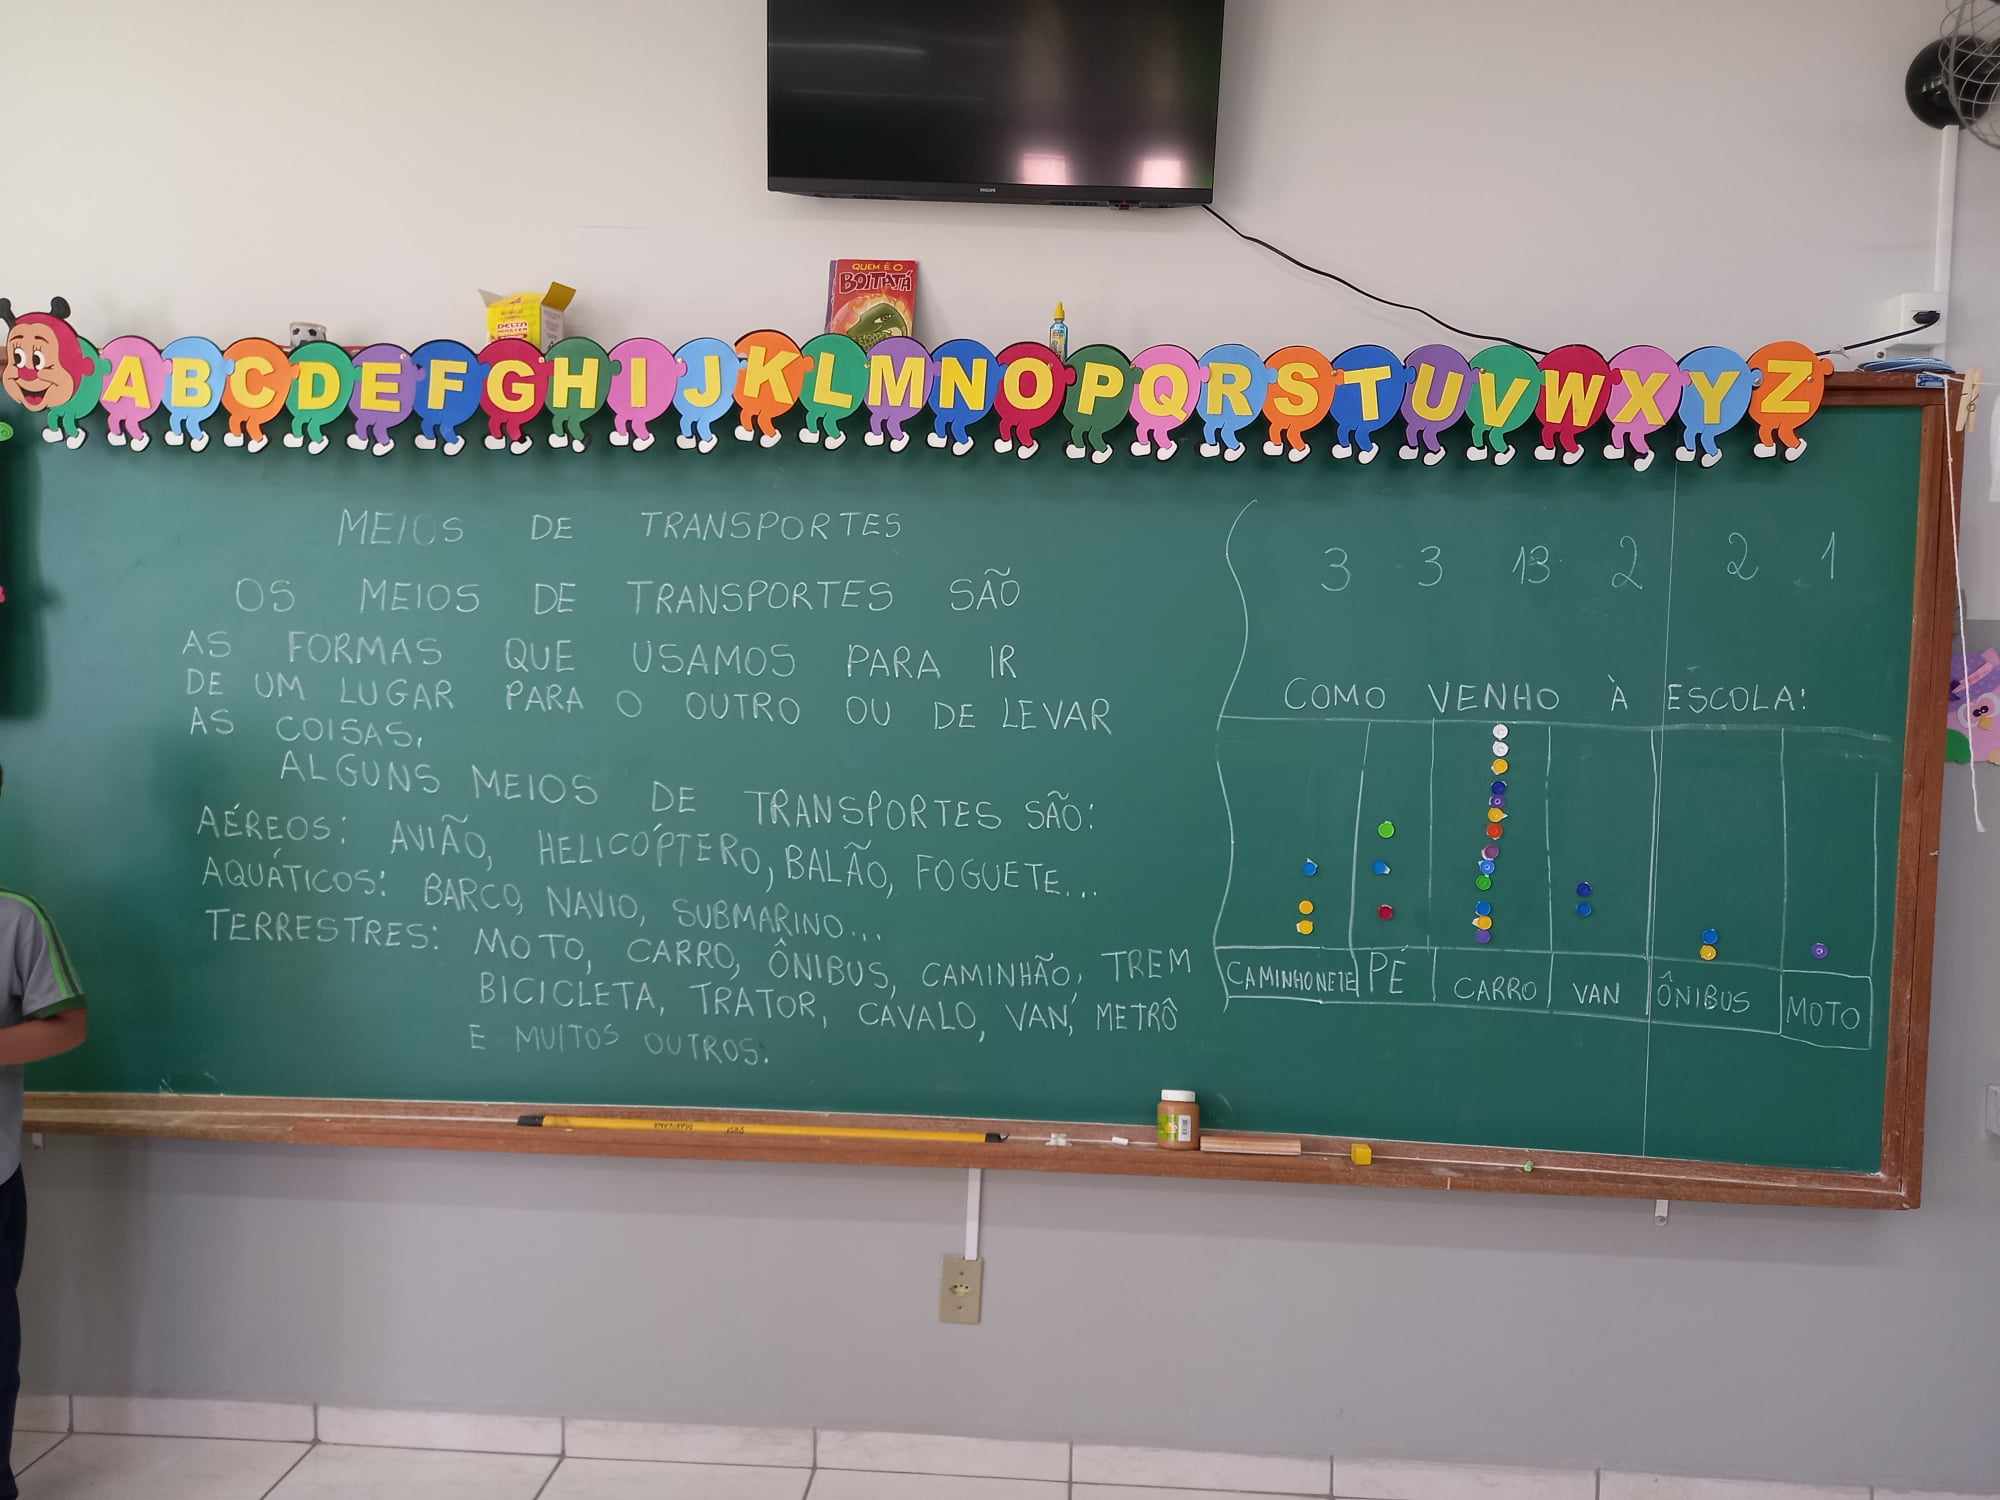 PHILIPS
QUEM É O
BOITATÁ
DELTA
A B C D E F G H I J K L M N O P Q R S T U V W X Y Z
MEIOS DE TRANSPORTES
OS MEIOS DE TRANSPORTES SÃO
AS FORMAS QUE USAMOS PARA IR
DE UM LUGAR PARA O OUTRO OU DE LEVAR
AS COISAS.
ALGUNS MEIOS DE TRANSPORTES SÃO:
AÉREOS: AVIÃO, HELICÓPTERO, BALÃO, FOGUETE...
AQUÁTICOS: BARCO, NAVIO, SUBMARINO...
TERRESTRES: MOTO, CARRO, ÔNIBUS, CAMINHÃO, TREM
BICICLETA, TRATOR, CAVALO, VAN, METRÔ
E MUITOS OUTROS.
3 3 13 2 2 1
COMO VENHO À ESCOLA:
CAMINHONETE PÉ CARRO VAN ÔNIBUS MOTO